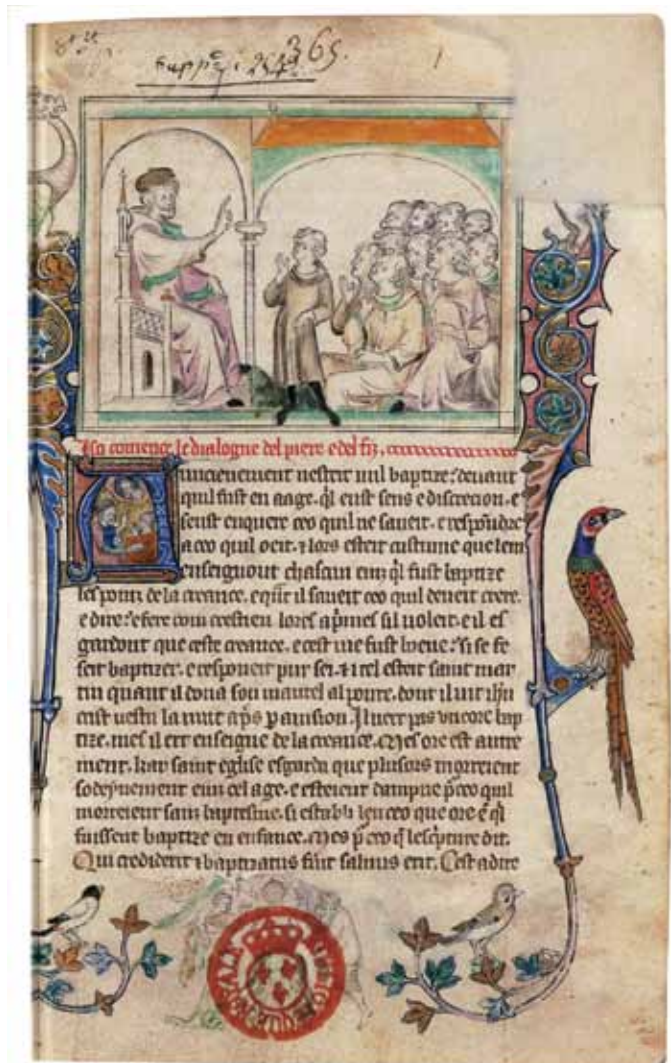 Suppl
1
Ici comence le dialogue del piere e del fiz.
Auncienement nestoit nul baptize devant
quil fust en aage. ql eust sens e discrecion. e
seust enquere ceo quil ne saveit. e respondre
a ceo quil oeit. ⁊ lors esteit custume que lem
enseignout chascun einz ql fust baptize
les poinz de la creance. e qnt il saveit ceo quil deveit crere.
e dire. e fere com crestien lores apmes sil voleit. e il es
gardout que ceste creance. e cest vie fust boene. si se fe
seit baptizer. e responeit pur sei. ⁊ tel esteit saint mar
tin quant il dona son mantel al povre. dont il vit
cust vestu la nuit aps avision. Il nert pas uncore bap
tize. mes il ert enseigne de la creance. Mes ore est autre
ment. kar saint eglise esgarda que plusors morreient
sodeynement einz cel age. e esteient dampne pceo quil
morreient sanz baptesme. si establi len ceo que ore e ql
fuissent baptize en enfance. Mes p ceo q lescpture dit.
Qui crediderit ⁊ baptizatus fuit salvus erit. Cest a dire